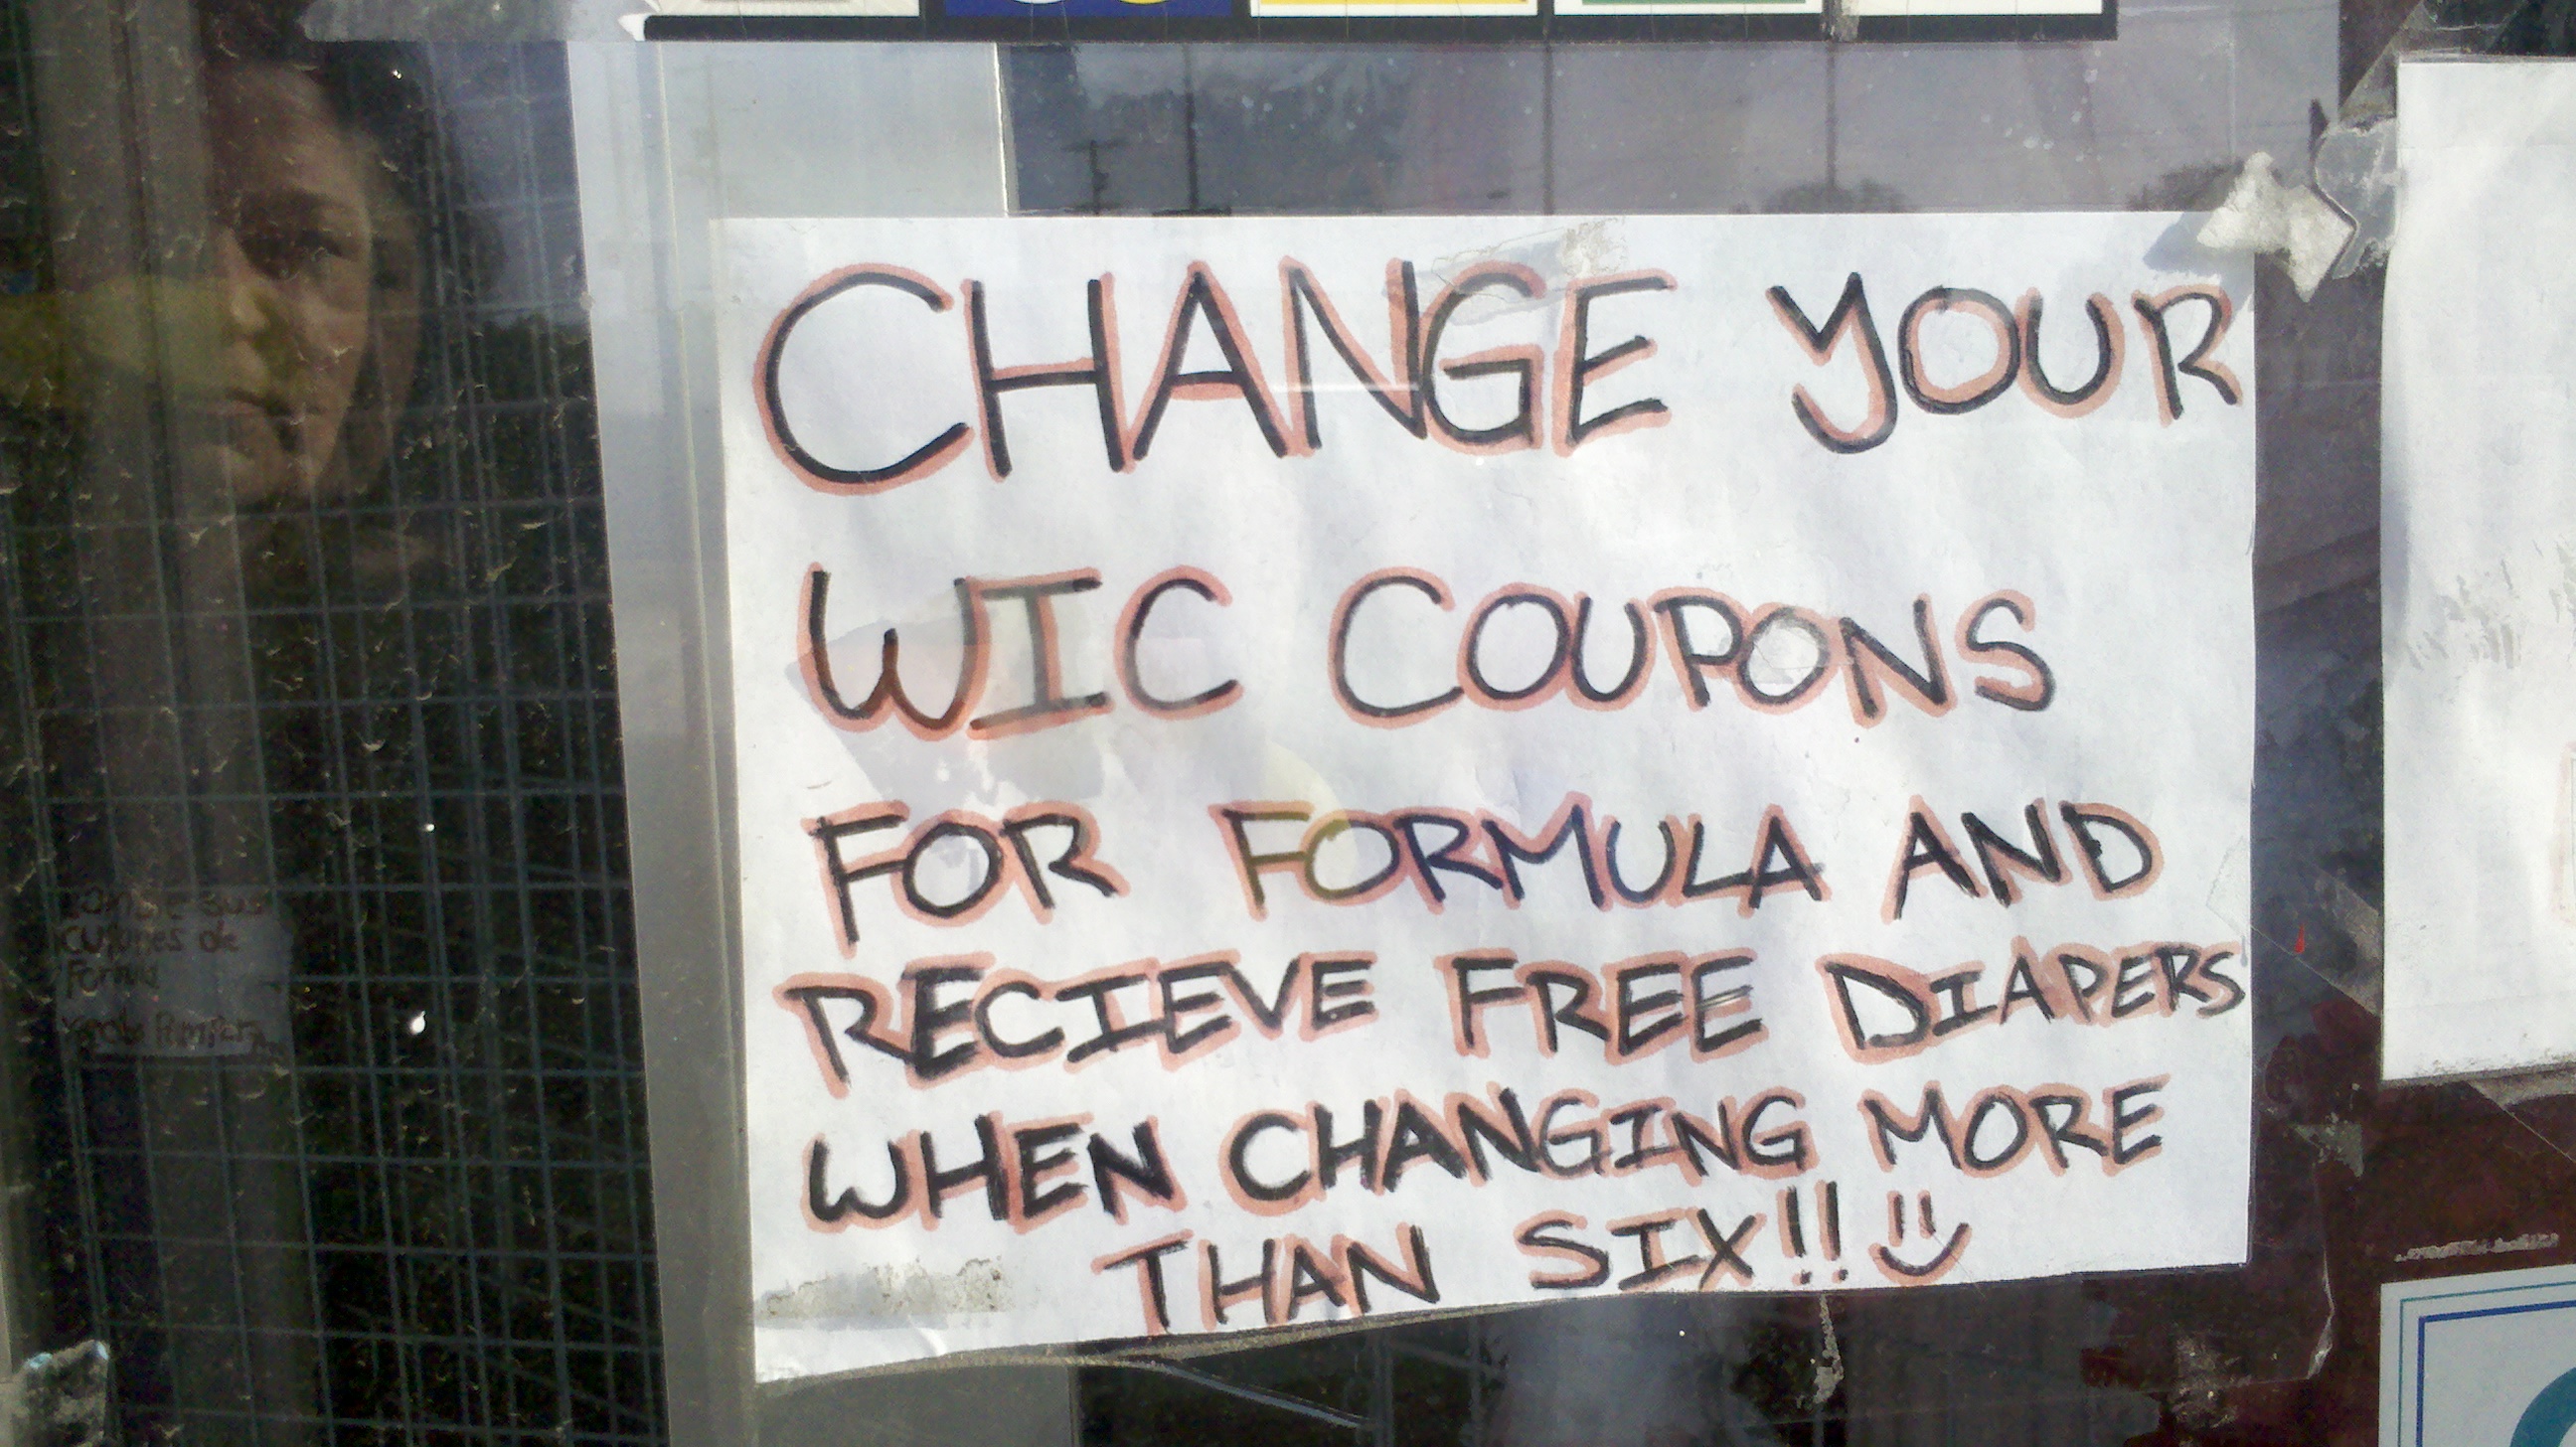 CHANGE YOUR
WIC COUPONS
FOR FORMULA AND
RECIEVE FREE DIAPERS
WHEN CHANGING MORE
THAN SIX!!
cupones de